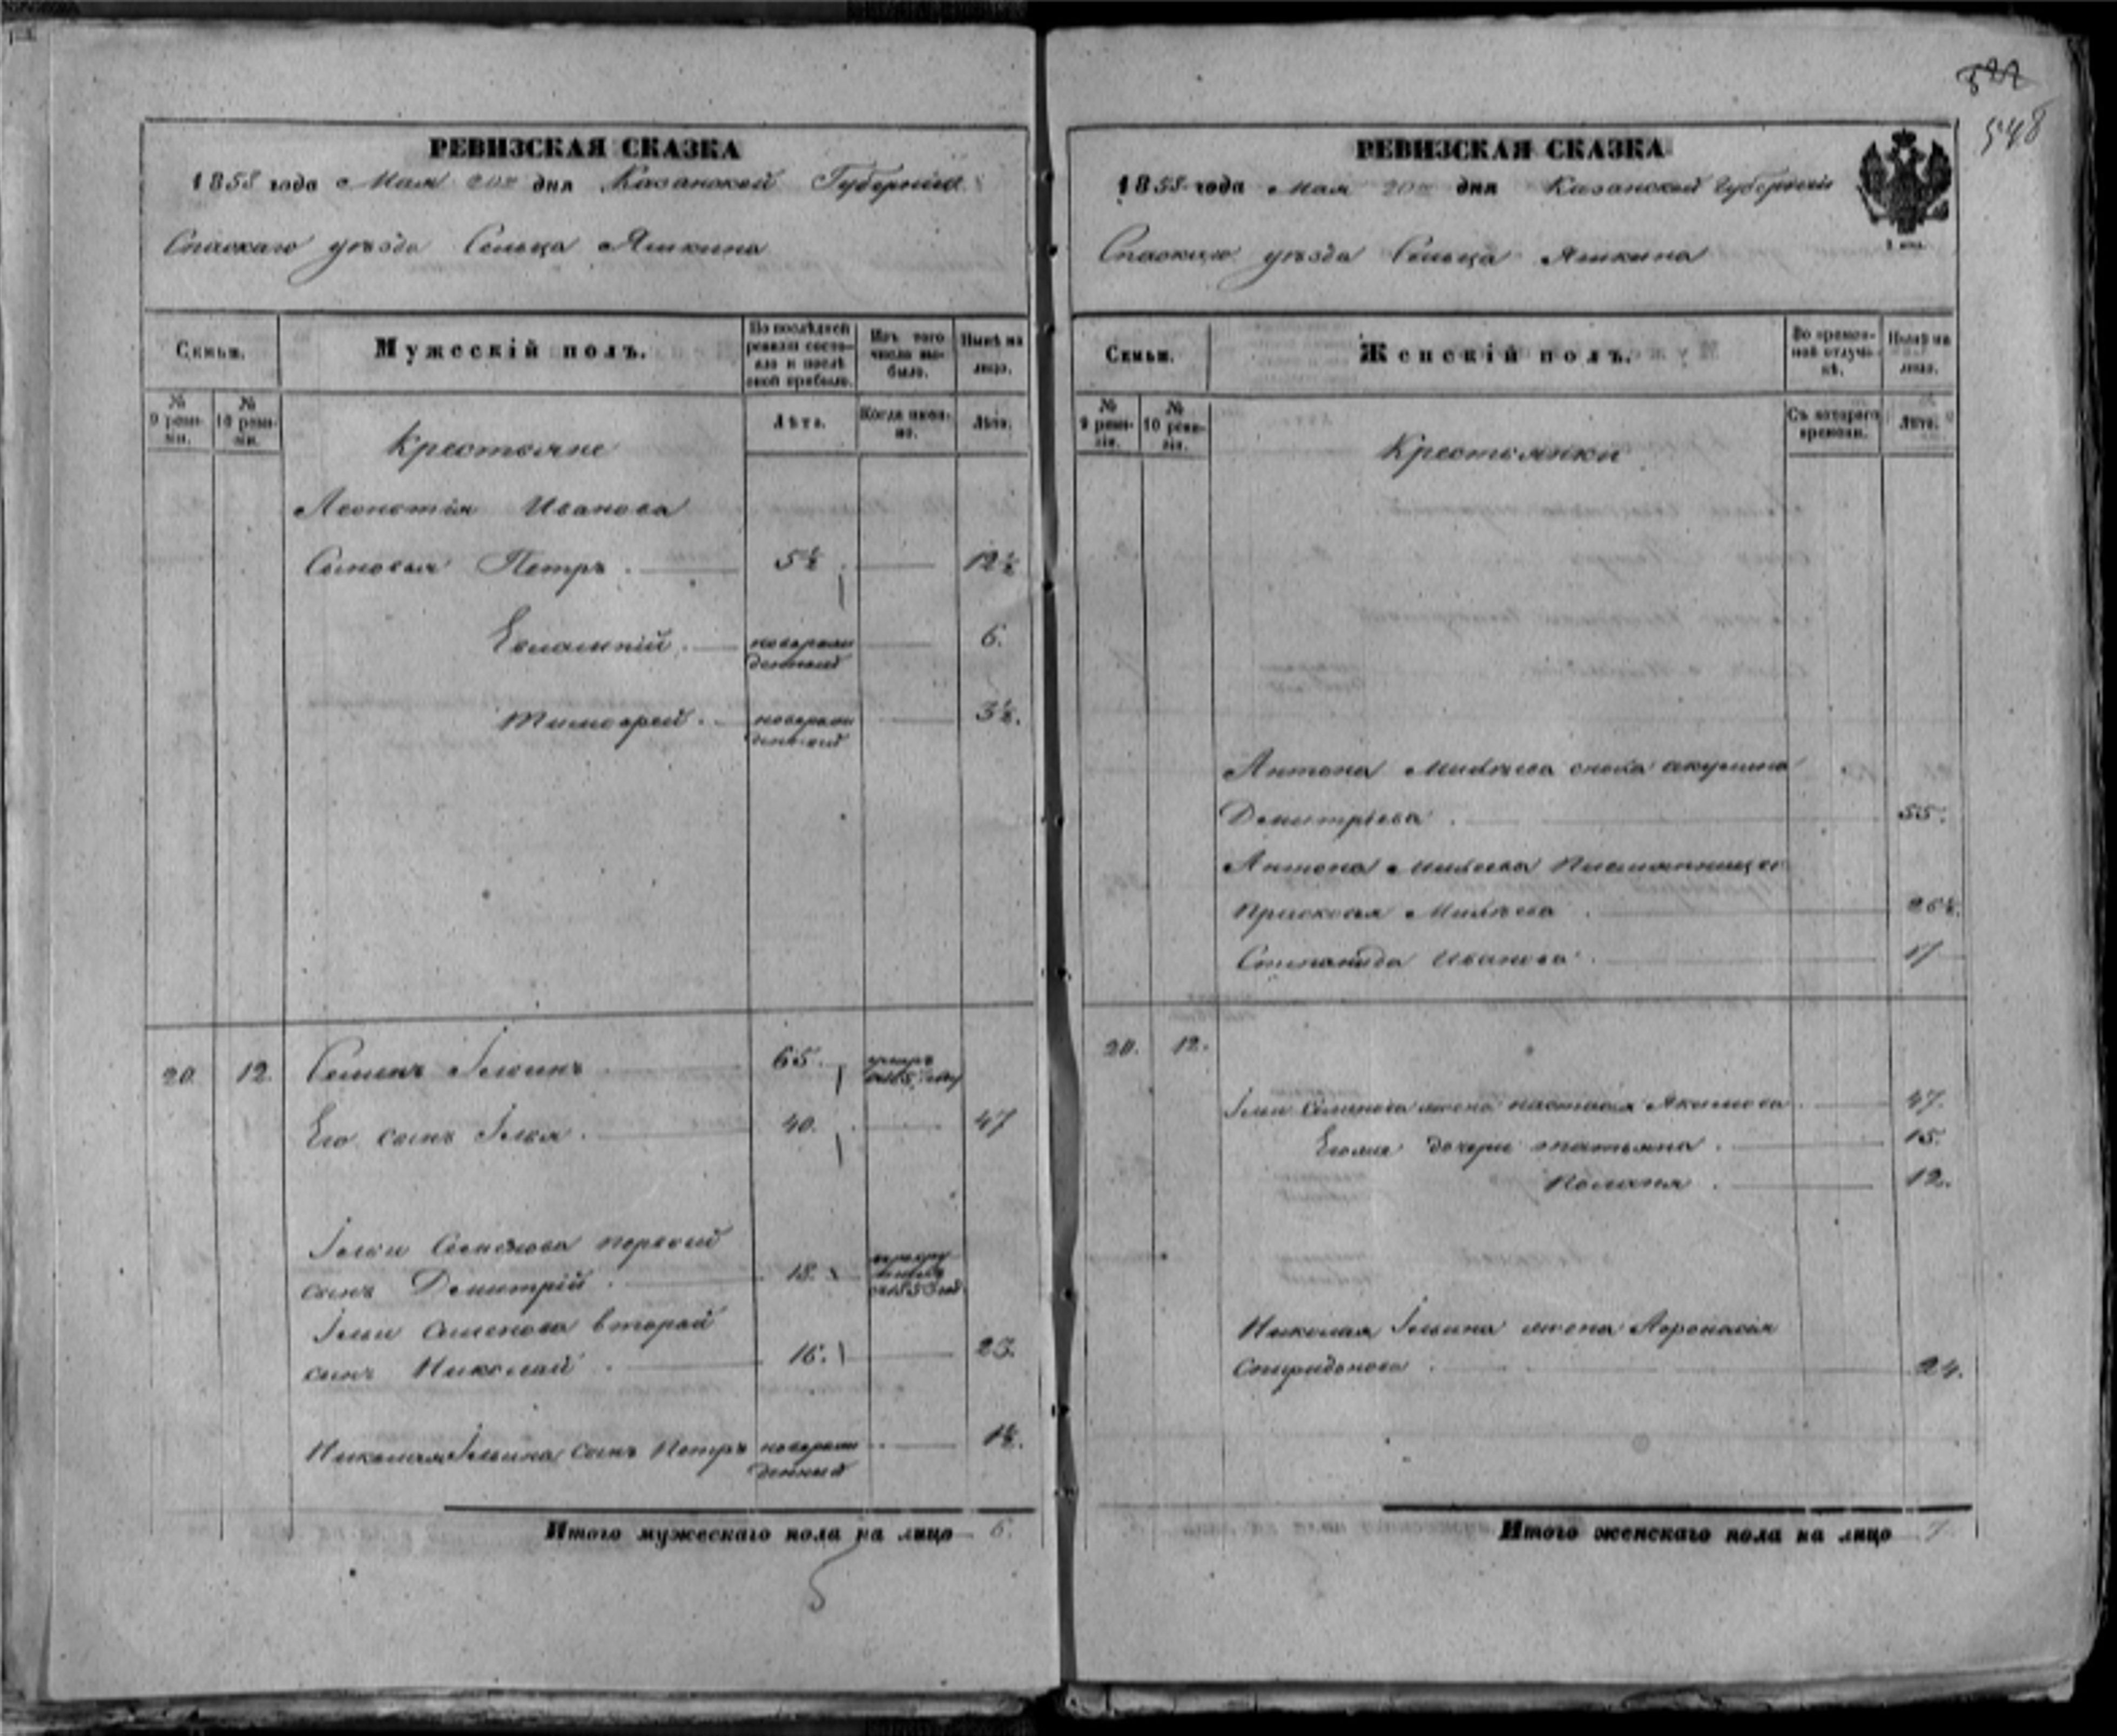 522
548
РЕВИЗСКАЯ СКАЗКА
1858 года Мая 20го дня Казанской Губернии
Спаскаго уезда Сельца Яшкина
Семьи.
Мужескій полъ.
По послѣдней ревизіи состояло и послѣ оной прибыло.
Изъ того числа выбыло.
Нынѣ на лицо.
№ 9 ревизіи.
№ 10 ревизіи.
Лѣта.
Когда именно.
Лѣта.
Крестьяне
Леонтія Иванова
Сыновья Петръ 5½ 12½
Евлампій новорожденный 6.
Тимофей новорожденный 3½.
20 12 Семенъ Ильинъ 65. умеръ
Его сынъ Илья 40. 47
Ильи Семенова первый
сынъ Димитрій 18.
Ильи Семенова второй
сынъ Николай 16. 23.
Николая Ильина сынъ Петръ новорожденный 1½.
Итого мужескаго пола на лицо 6.
5
РЕВИЗСКАЯ СКАЗКА
1858 года Мая 20го дня Казанской Губерніи
Спаскаго уезда Сельца Яшкина
Семьи.
Женскій полъ.
Во временной отлучкѣ.
Нынѣ на лицо.
№ 9 ревизіи.
№ 10 ревизіи.
Съ котораго времени.
Лѣта.
Крестьянки
Антона сноха акулина
Демитріева 55.
Антона племянницы
Прасковья 26½.
Степанида Иванова 17
20. 12.
Ильи Семенова жена настасья Акимова 47.
Егоже дочери татьяна 15.
Поланя 12.
Николая Ильина жена Афонасія
Спиридонова 24.
Итого женскаго пола на лицо 7